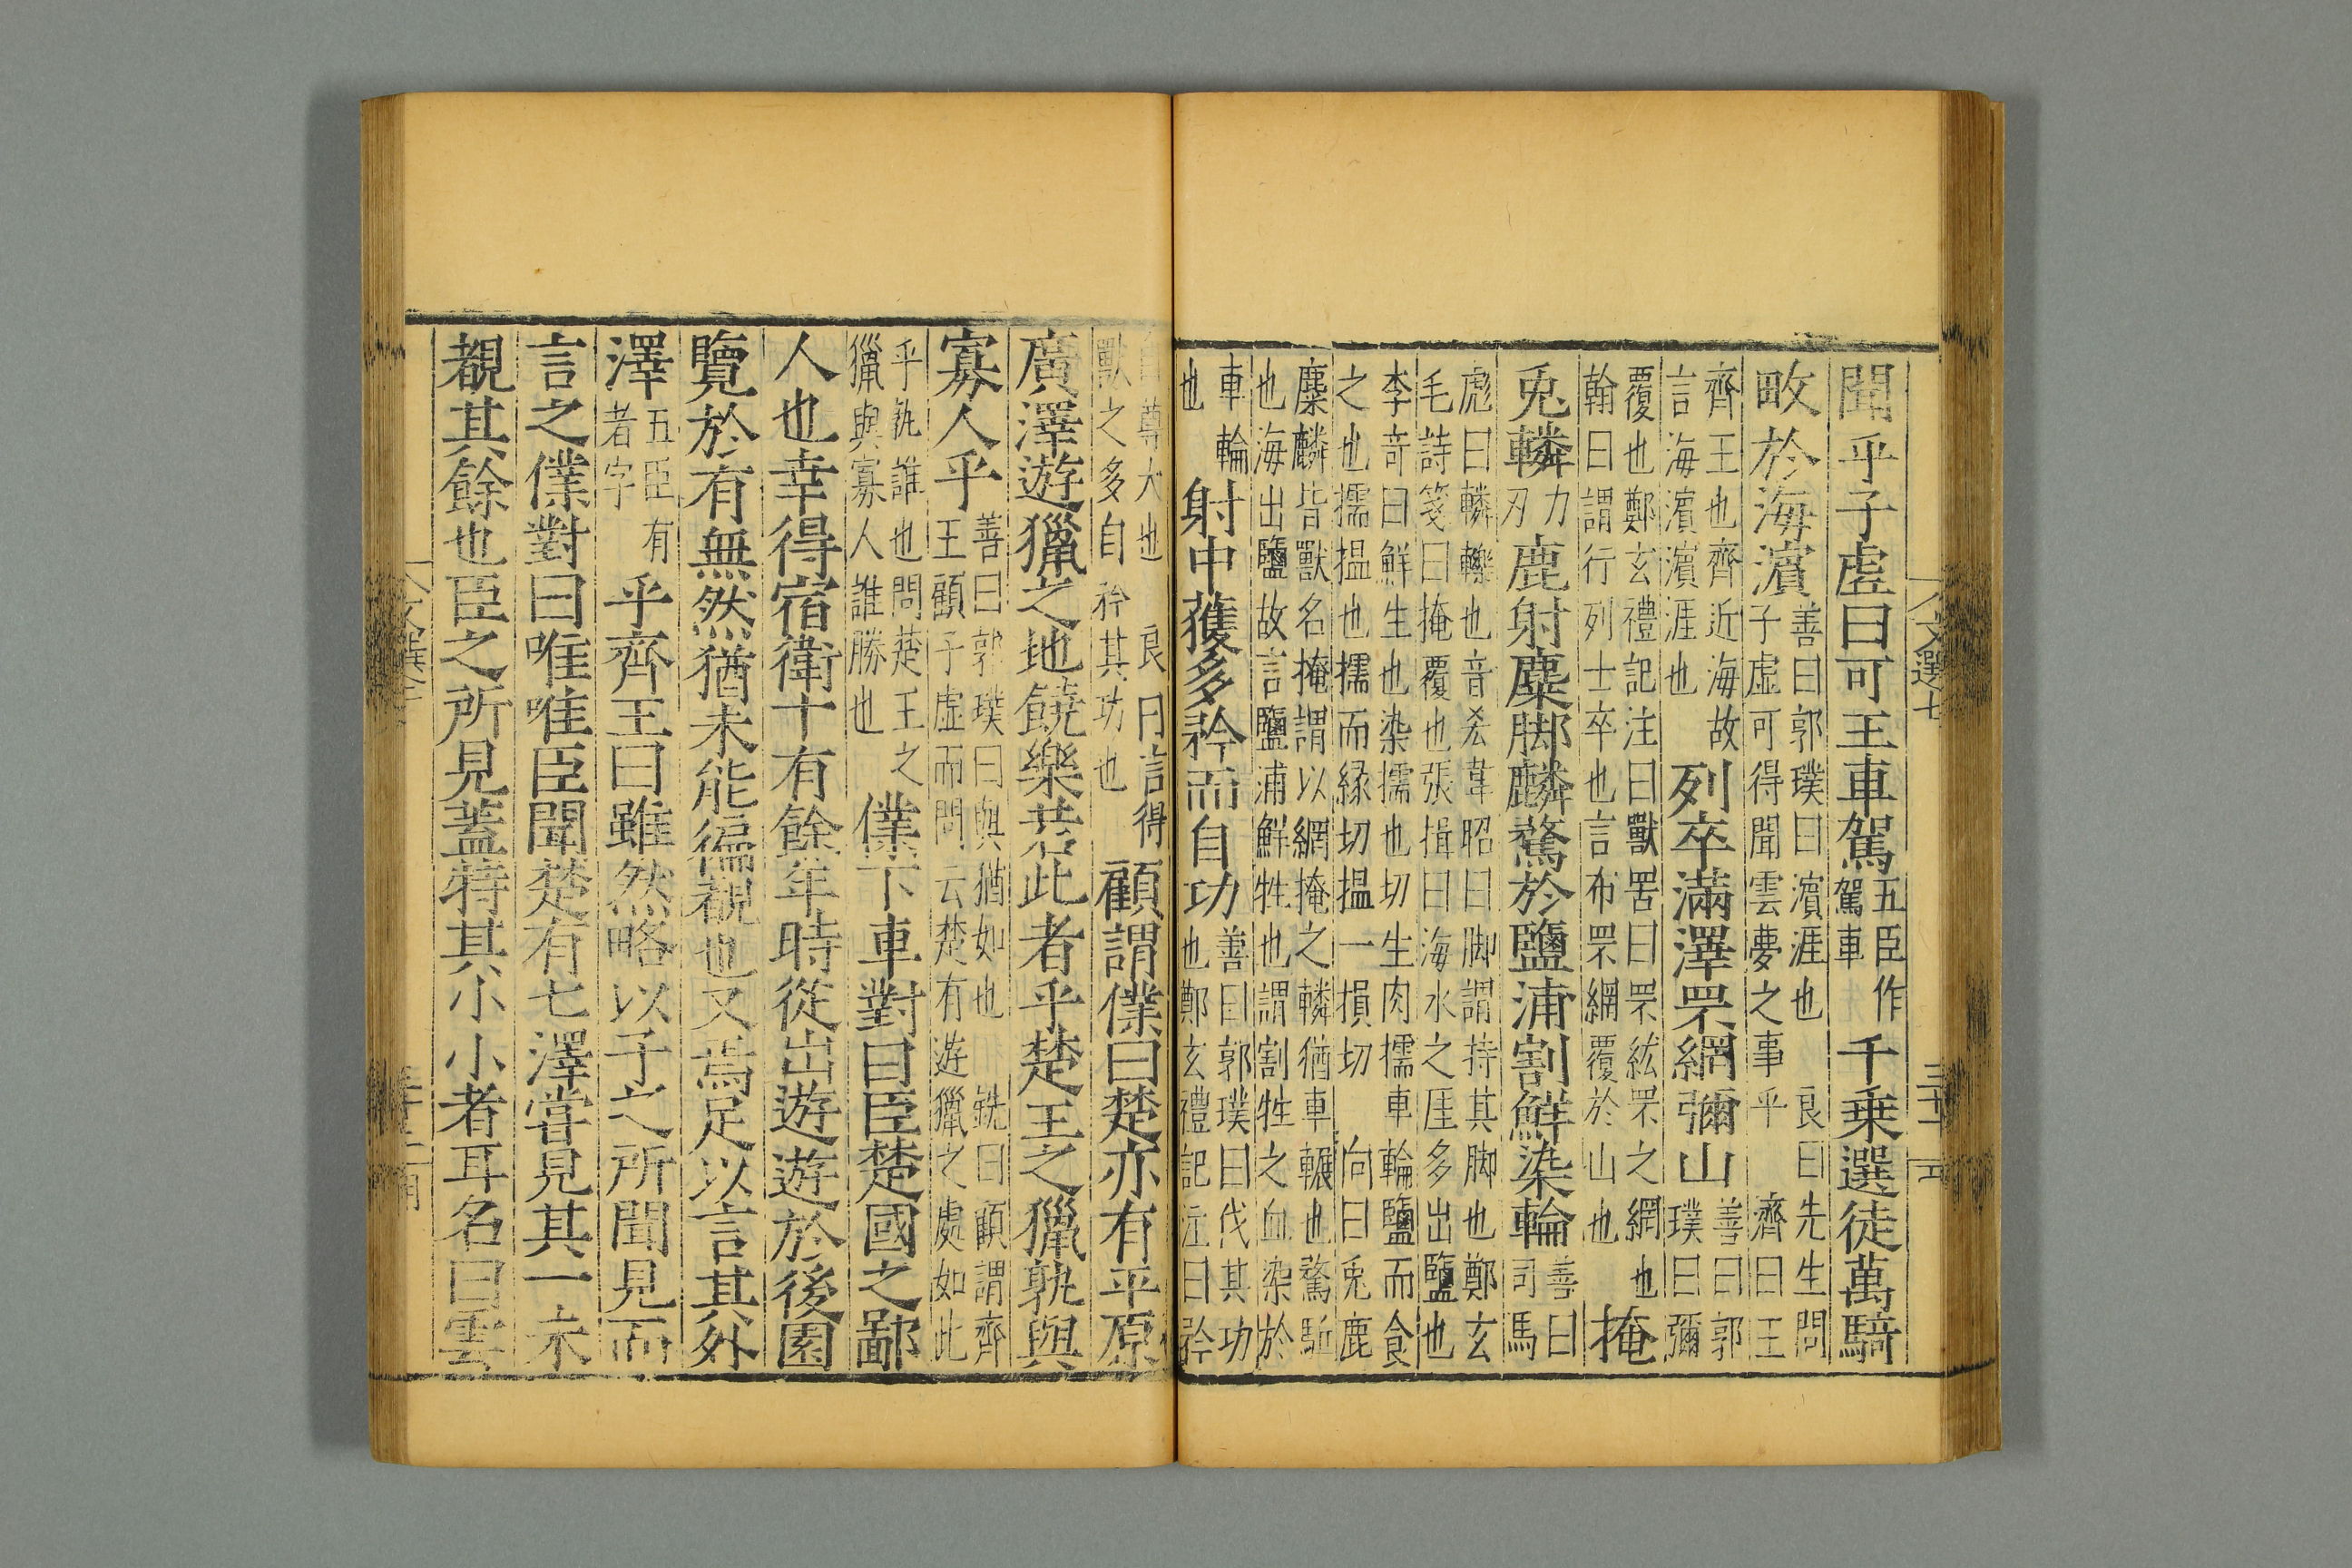 聞乎子虛曰可王車駕五臣作駕車千乘選徒萬騎
畋於海濵善曰郭璞曰濵涯也良曰先生問子虛可得聞雲夢之事乎齊曰王
齊王也齊近海故言海濵濵涯也列卒滿澤罘網彌山善曰郭璞曰彌
覆也鄭玄禮記注曰獸罟曰罘紘罘之網也翰曰謂行列士卒也言布罘網覆於山也掩
兎轔力刃鹿射麋脚麟騖於鹽浦割鮮染輪善曰司馬
彪曰轔轢也音韋昭曰脚謂持其脚也鄭玄毛詩箋曰掩覆也張揖曰海水之厓多出鹽也
李竒曰鮮生也染擩也切生肉擩車輪鹽而食之也擩搵也擩而緣切搵一損切向曰兎鹿
麋麟皆獸名掩謂以網掩之轔猶車輾也騖馳也海出鹽故言鹽浦鮮牲也謂割牲之血染於
車輪也射中獲多矜而自功善曰郭璞曰伐其功也鄭玄禮記注曰矜
尊大也良曰言得獸之多自矜其功也顧謂僕曰楚亦有平原
廣澤遊獵之地饒樂若此者乎楚王之獵孰與
寡人乎善曰郭璞曰與猶如也銑曰顧謂齊王顧子虛而問云楚有遊獵之處如此
乎孰誰也問楚王之獵與寡人誰勝也僕下車對曰臣楚國之鄙
人也幸得宿衛十有餘年時從出遊遊於後園
覽於有無然猶未能徧覩也又焉足以言其外
澤五臣有者字乎齊王曰雖然略以子之所聞見而
言之僕對曰唯唯臣聞楚有七澤甞見其一未
覩其餘也臣之所見蓋特其小小者耳名曰雲
文選七